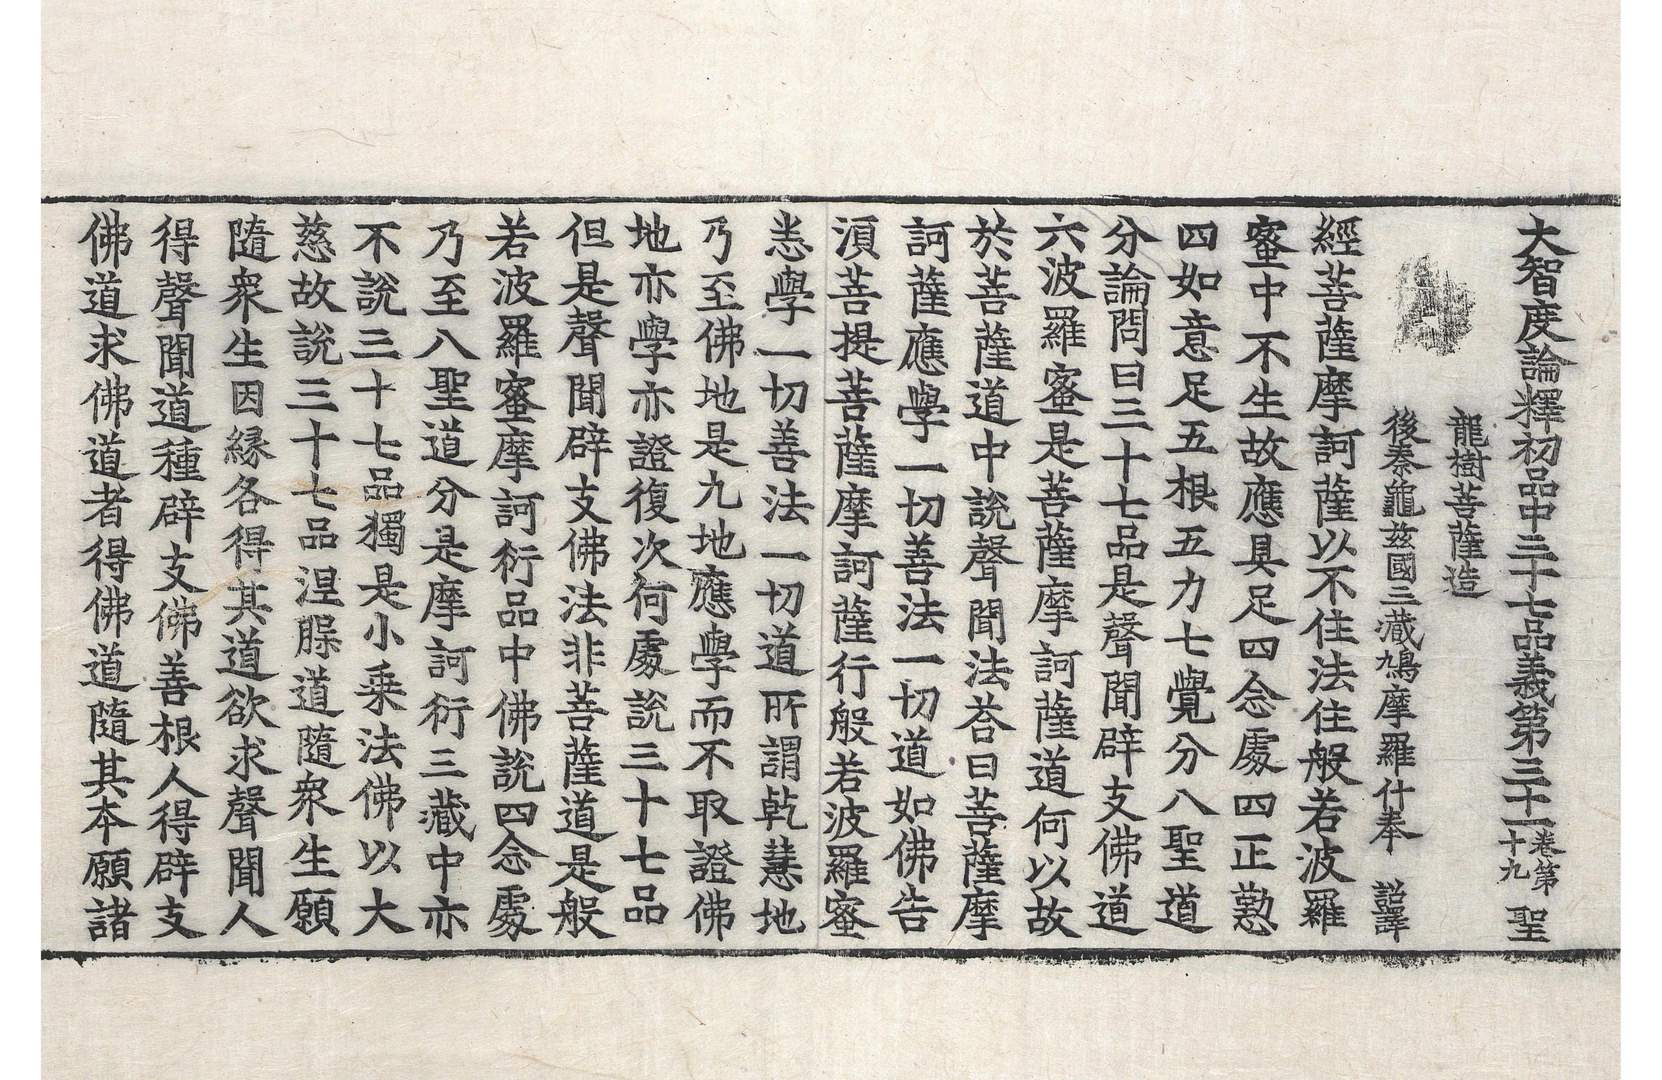 大智度論釋初品中三十七品義第三十一 卷第十九 聖
龍樹菩薩造
後秦龜茲國三藏鳩摩羅什奉 詔譯
經菩薩摩訶薩以不住法住般若波羅
蜜中不生故應具足四念處四正懃
四如意足五根五力七覺分八聖道
分論問曰三十七品是聲聞辟支佛道
六波羅蜜是菩薩摩訶薩道何以故
於菩薩道中說聲聞法荅曰菩薩摩
訶薩應學一切善法一切道如佛告
湏菩提菩薩摩訶薩行般若波羅蜜
悉學一切善法一切道所謂乾慧地
乃至佛地是九地應學而不取證佛
地亦學亦證復次何處說三十七品
但是聲聞辟支佛法非菩薩道是般
若波羅蜜摩訶衍品中佛說四念處
乃至八聖道分是摩訶衍三藏中亦
不說三十七品獨是小乗法佛以大
慈故說三十七品涅槃道隨衆生願
隨衆生因緣各得其道欲求聲聞人
得聲聞道種辟支佛善根人得辟支
佛道求佛道者得佛道隨其本願諸